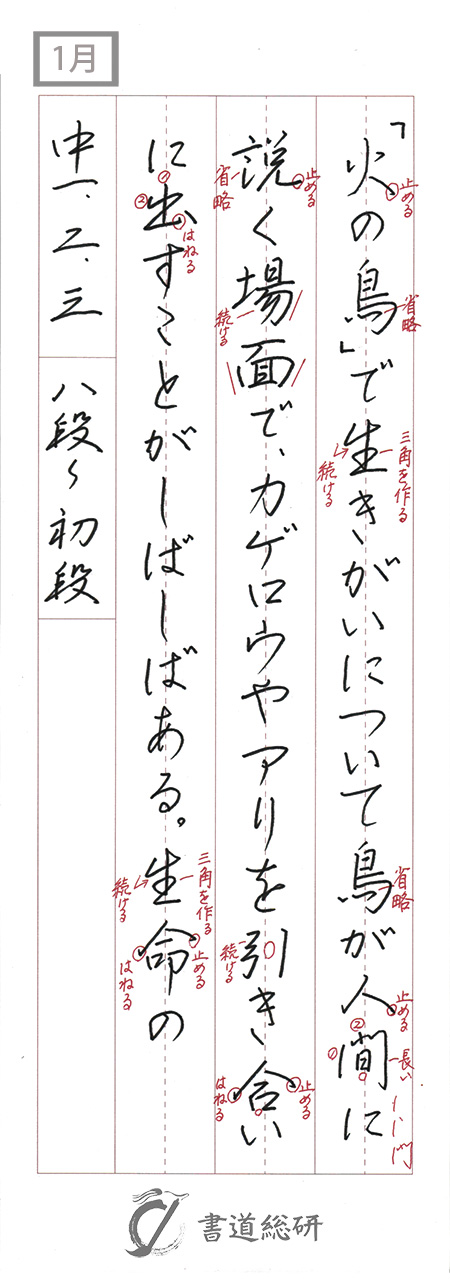 1月
「火の鳥」で生きがいについて鳥が人間に
止める
省略
三角を作る
続ける
省略
止める
長い
説く場面で、カゲロウやアリを引き合い
止める
省略
続ける
続ける
止める
はねる
に出すことがしばしばある。生命の
はねる
三角を作る
続ける
止める
はねる
中一、二、三
八段〜初段
書道総研